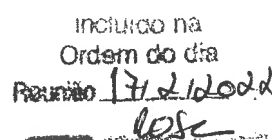 Incluido na
Ordem do dia
Reunião 17/2/2022